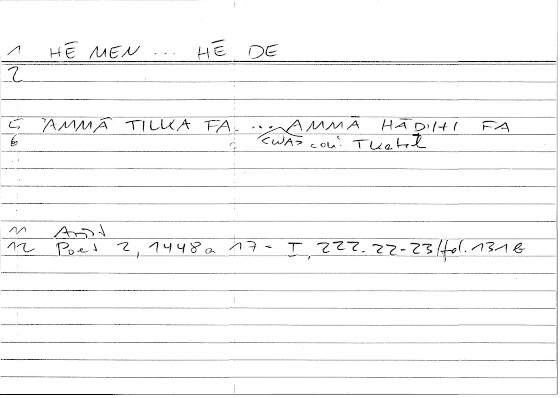 1 HĒ MEN ... HĒ DE
2
5 'AMMĀ TILKA FA ... AMMĀ HĀDIHI FA
6 <WA> coni. Tkatsch
11 Arist
12 Poet 2, 1448a 17 - I, 222.22-23/fol.131b